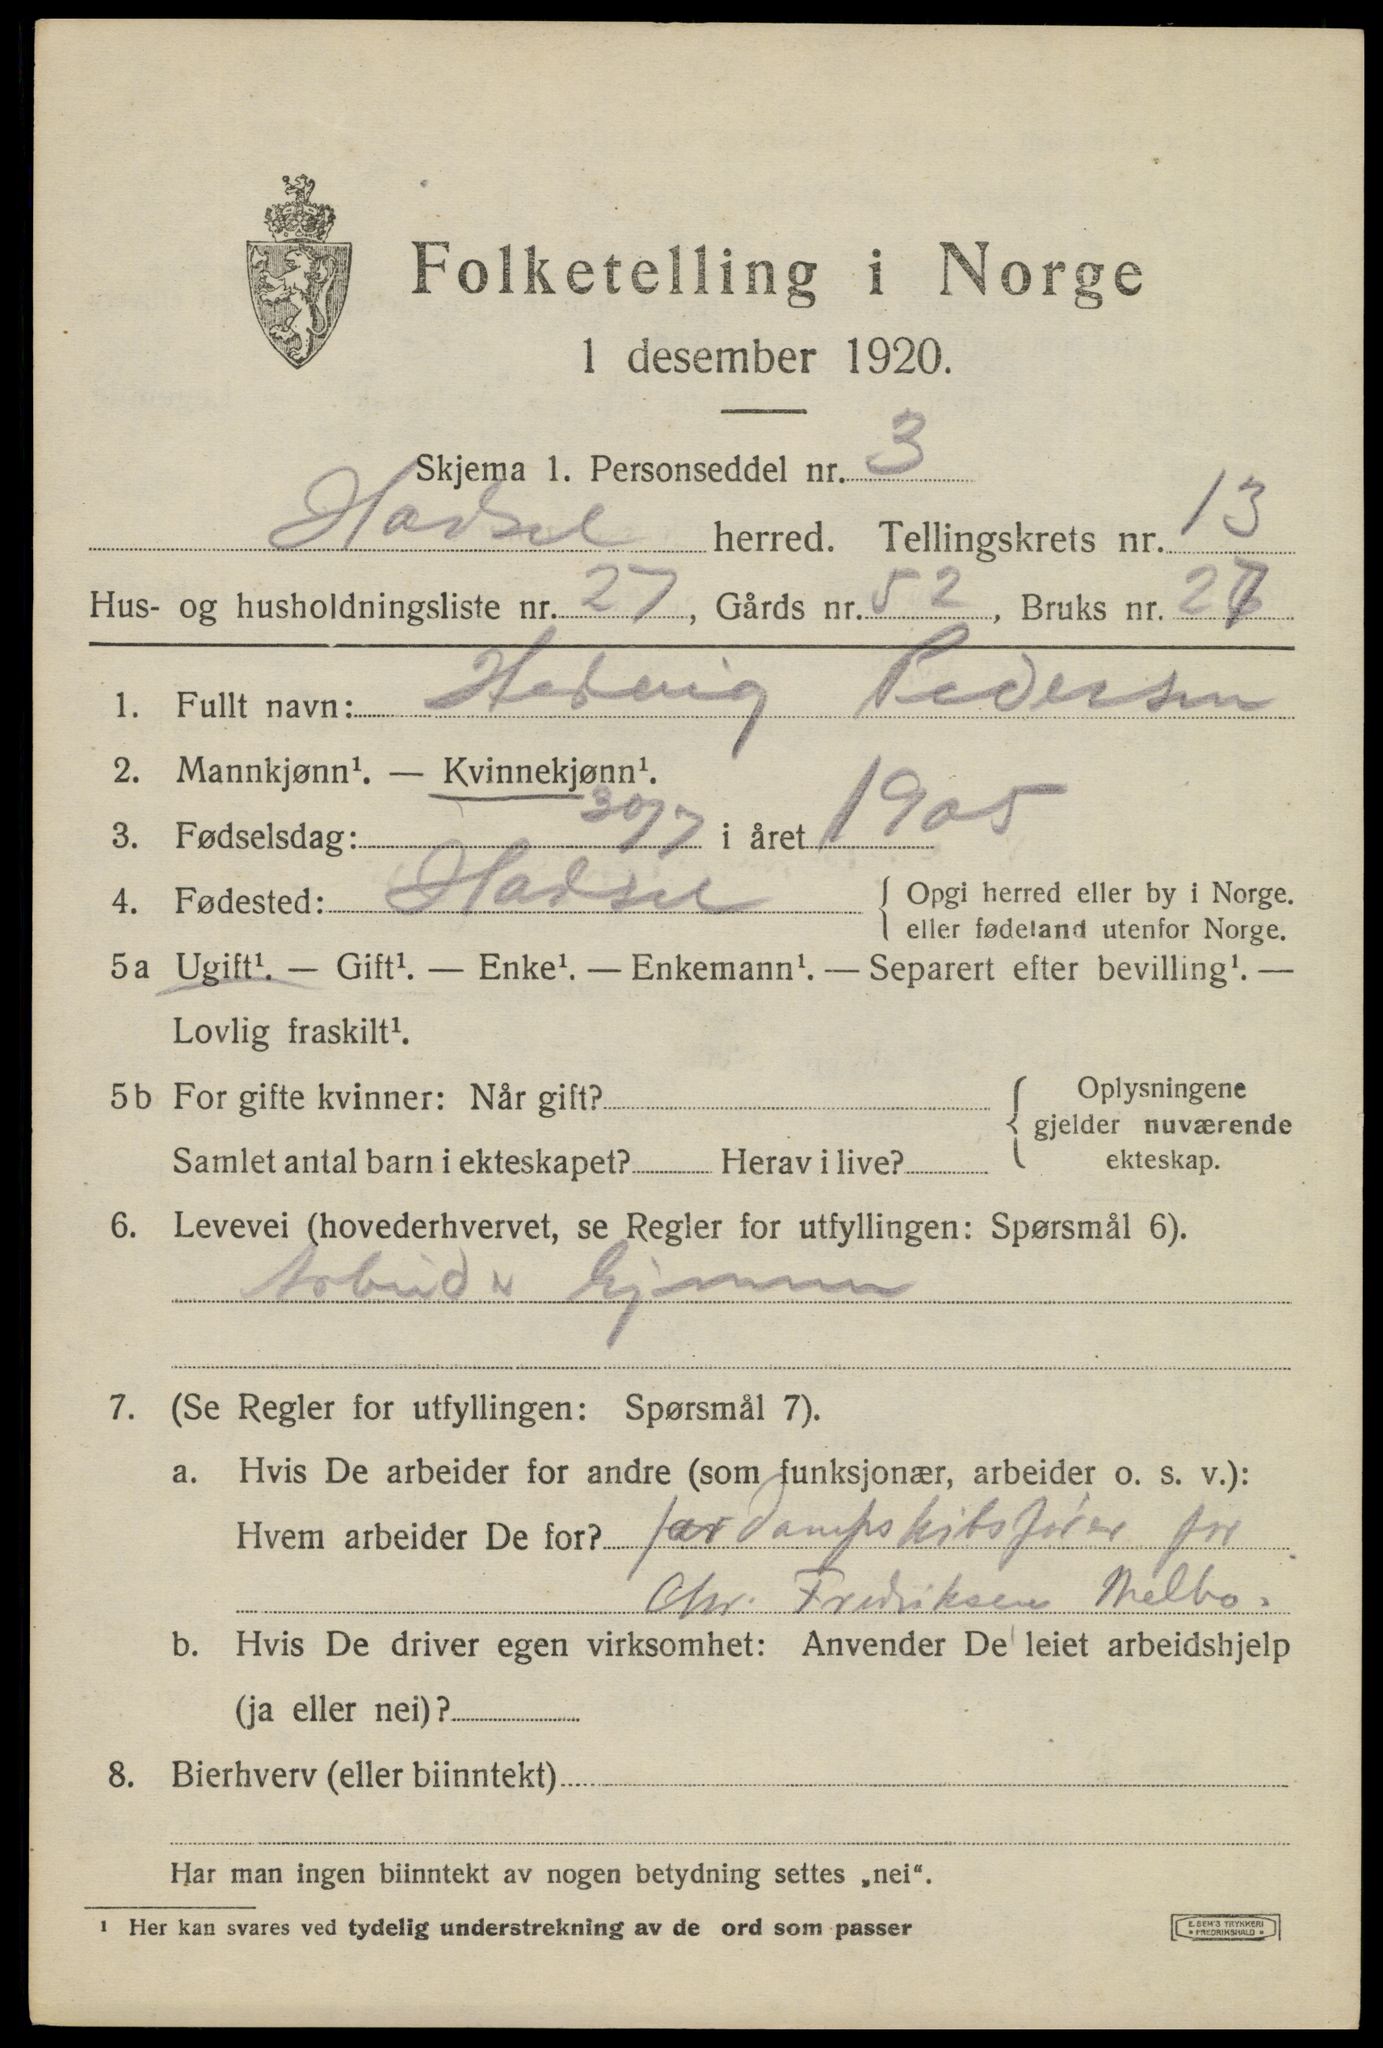 Folketelling i Norge
1 desember 1920.
Skjema 1. Personseddel nr. 3
Hadsel herred. Tellingskrets nr. 13
Hus- og husholdningsliste nr. 27, Gårds nr. 52, Bruks nr. 27
1. Fullt navn: Hedvig Pedersen
2. Mannkjønn¹. — Kvinnekjønn¹.
3. Fødselsdag: 30/7 i året 1905
4. Fødested: Hadsel { Opgi herred eller by i Norge.
eller fødeland utenfor Norge.
5a Ugift¹. — Gift¹. — Enke¹. — Enkemann¹. — Separert efter bevilling¹. —
Lovlig fraskilt¹.
5b For gifte kvinner: Når gift?
Samlet antal barn i ekteskapet? Herav i live?
{ Oplysningene
gjelder nuværende
ekteskap.
6. Levevei (hovederhvervet, se Regler for utfyllingen: Spørsmål 6).
Arbeid i hjemmet
7. (Se Regler for utfyllingen: Spørsmål 7).
a. Hvis De arbeider for andre (som funksjonær, arbeider o. s. v.):
Hvem arbeider De for? far dampskibsfører for
Chr. Fredriksen Melbo.
b. Hvis De driver egen virksomhet: Anvender De leiet arbeidshjelp
(ja eller nei)?
8. Bierhverv (eller biinntekt)
Har man ingen biinntekt av nogen betydning settes „nei“.
¹ Her kan svares ved tydelig understrekning av de ord som passer
E. SEM'S TRYKKERI
* FREDRIKSHALD *